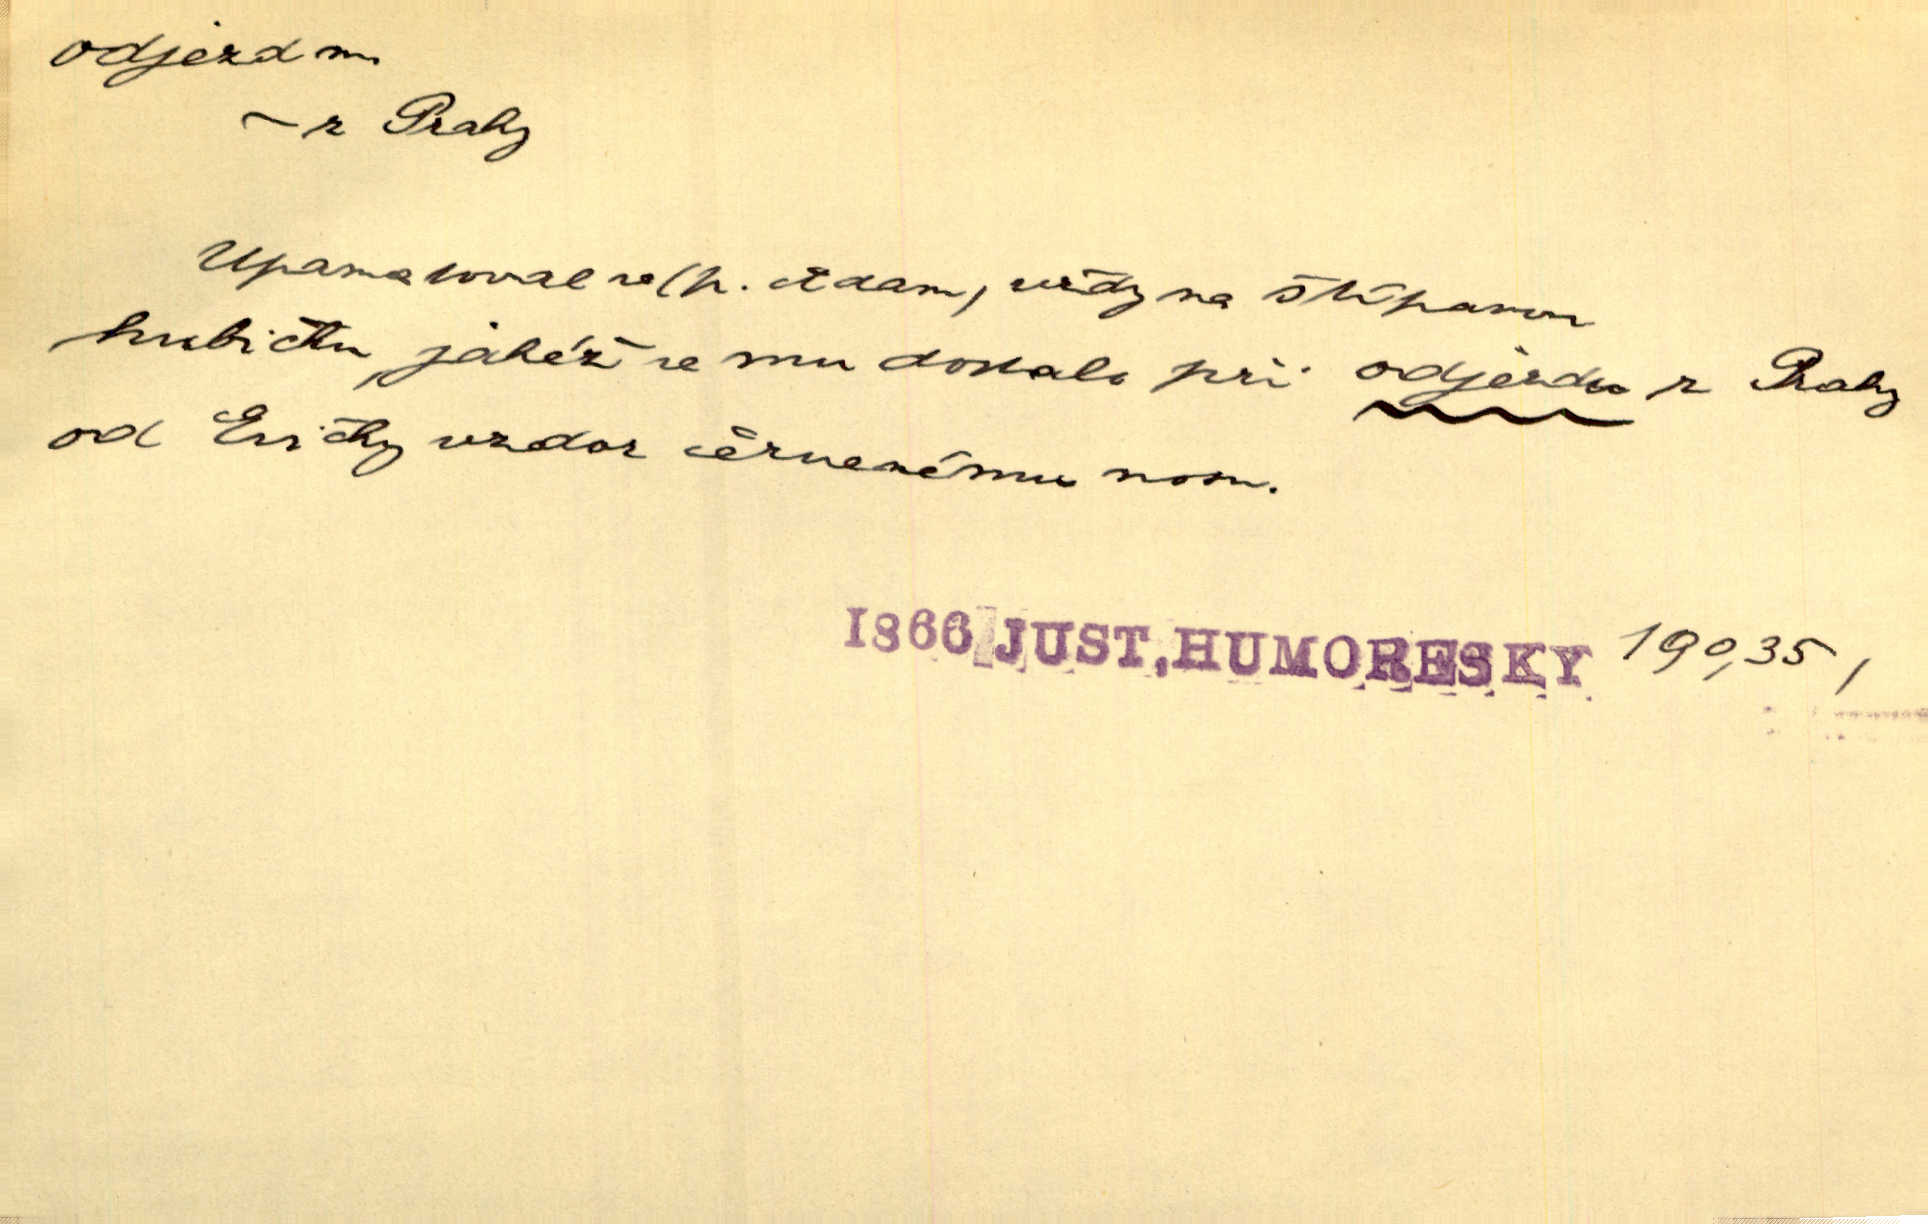 odjezd m.
~ z Prahy
Upamatoval se (p. Adam) vždy na štípanou
hubičku, jakéž se mu dostalo při odjezdu z Prahy
od Evičky vzdor červenému nosu.
1866 JUST, HUMORESKY 190,35,